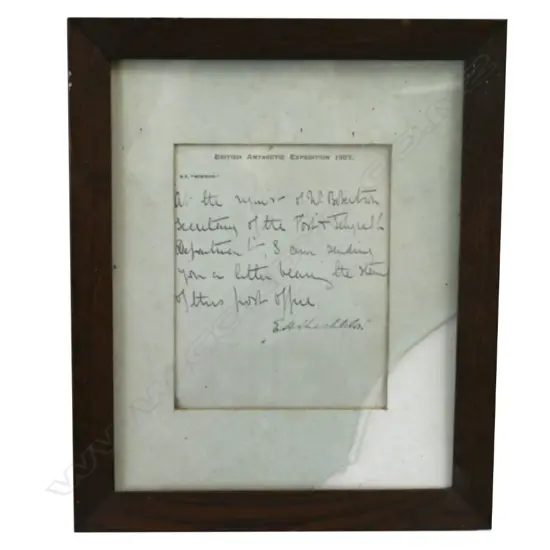 BRITISH ANTARCTIC EXPEDITION 1907.
S.Y. "NIMROD"
At the request of Mr Robertson
Secretary of the Post & Telegraph
Department, I am sending
you a letter bearing the stamp
of this post office
E H Shackleton